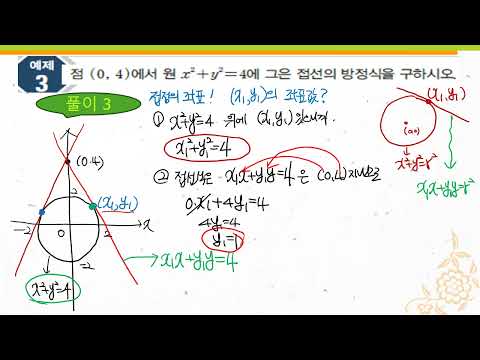 예제 3
점 (0, 4)에서 원 x²+y²=4에 그은 접선의 방정식을 구하시오.
풀이 3
접점의 좌표! (x₁,y₁)의 좌표값?
① x²+y²=4 위에 (x₁,y₁) 있으니까.
x₁²+y₁²=4
② 접선식은 x₁x+y₁y=4은 (0,4) 지나므로
0·x₁+4y₁=4
4y₁=4
y₁=1
(0.4)
(x₁,y₁)
2
-2
0
2
x
-2
x²+y²=4
x₁x+y₁y=4
(x₁,y₁)
(0,0)
x²+y²=r²
x₁x+y₁y=r²